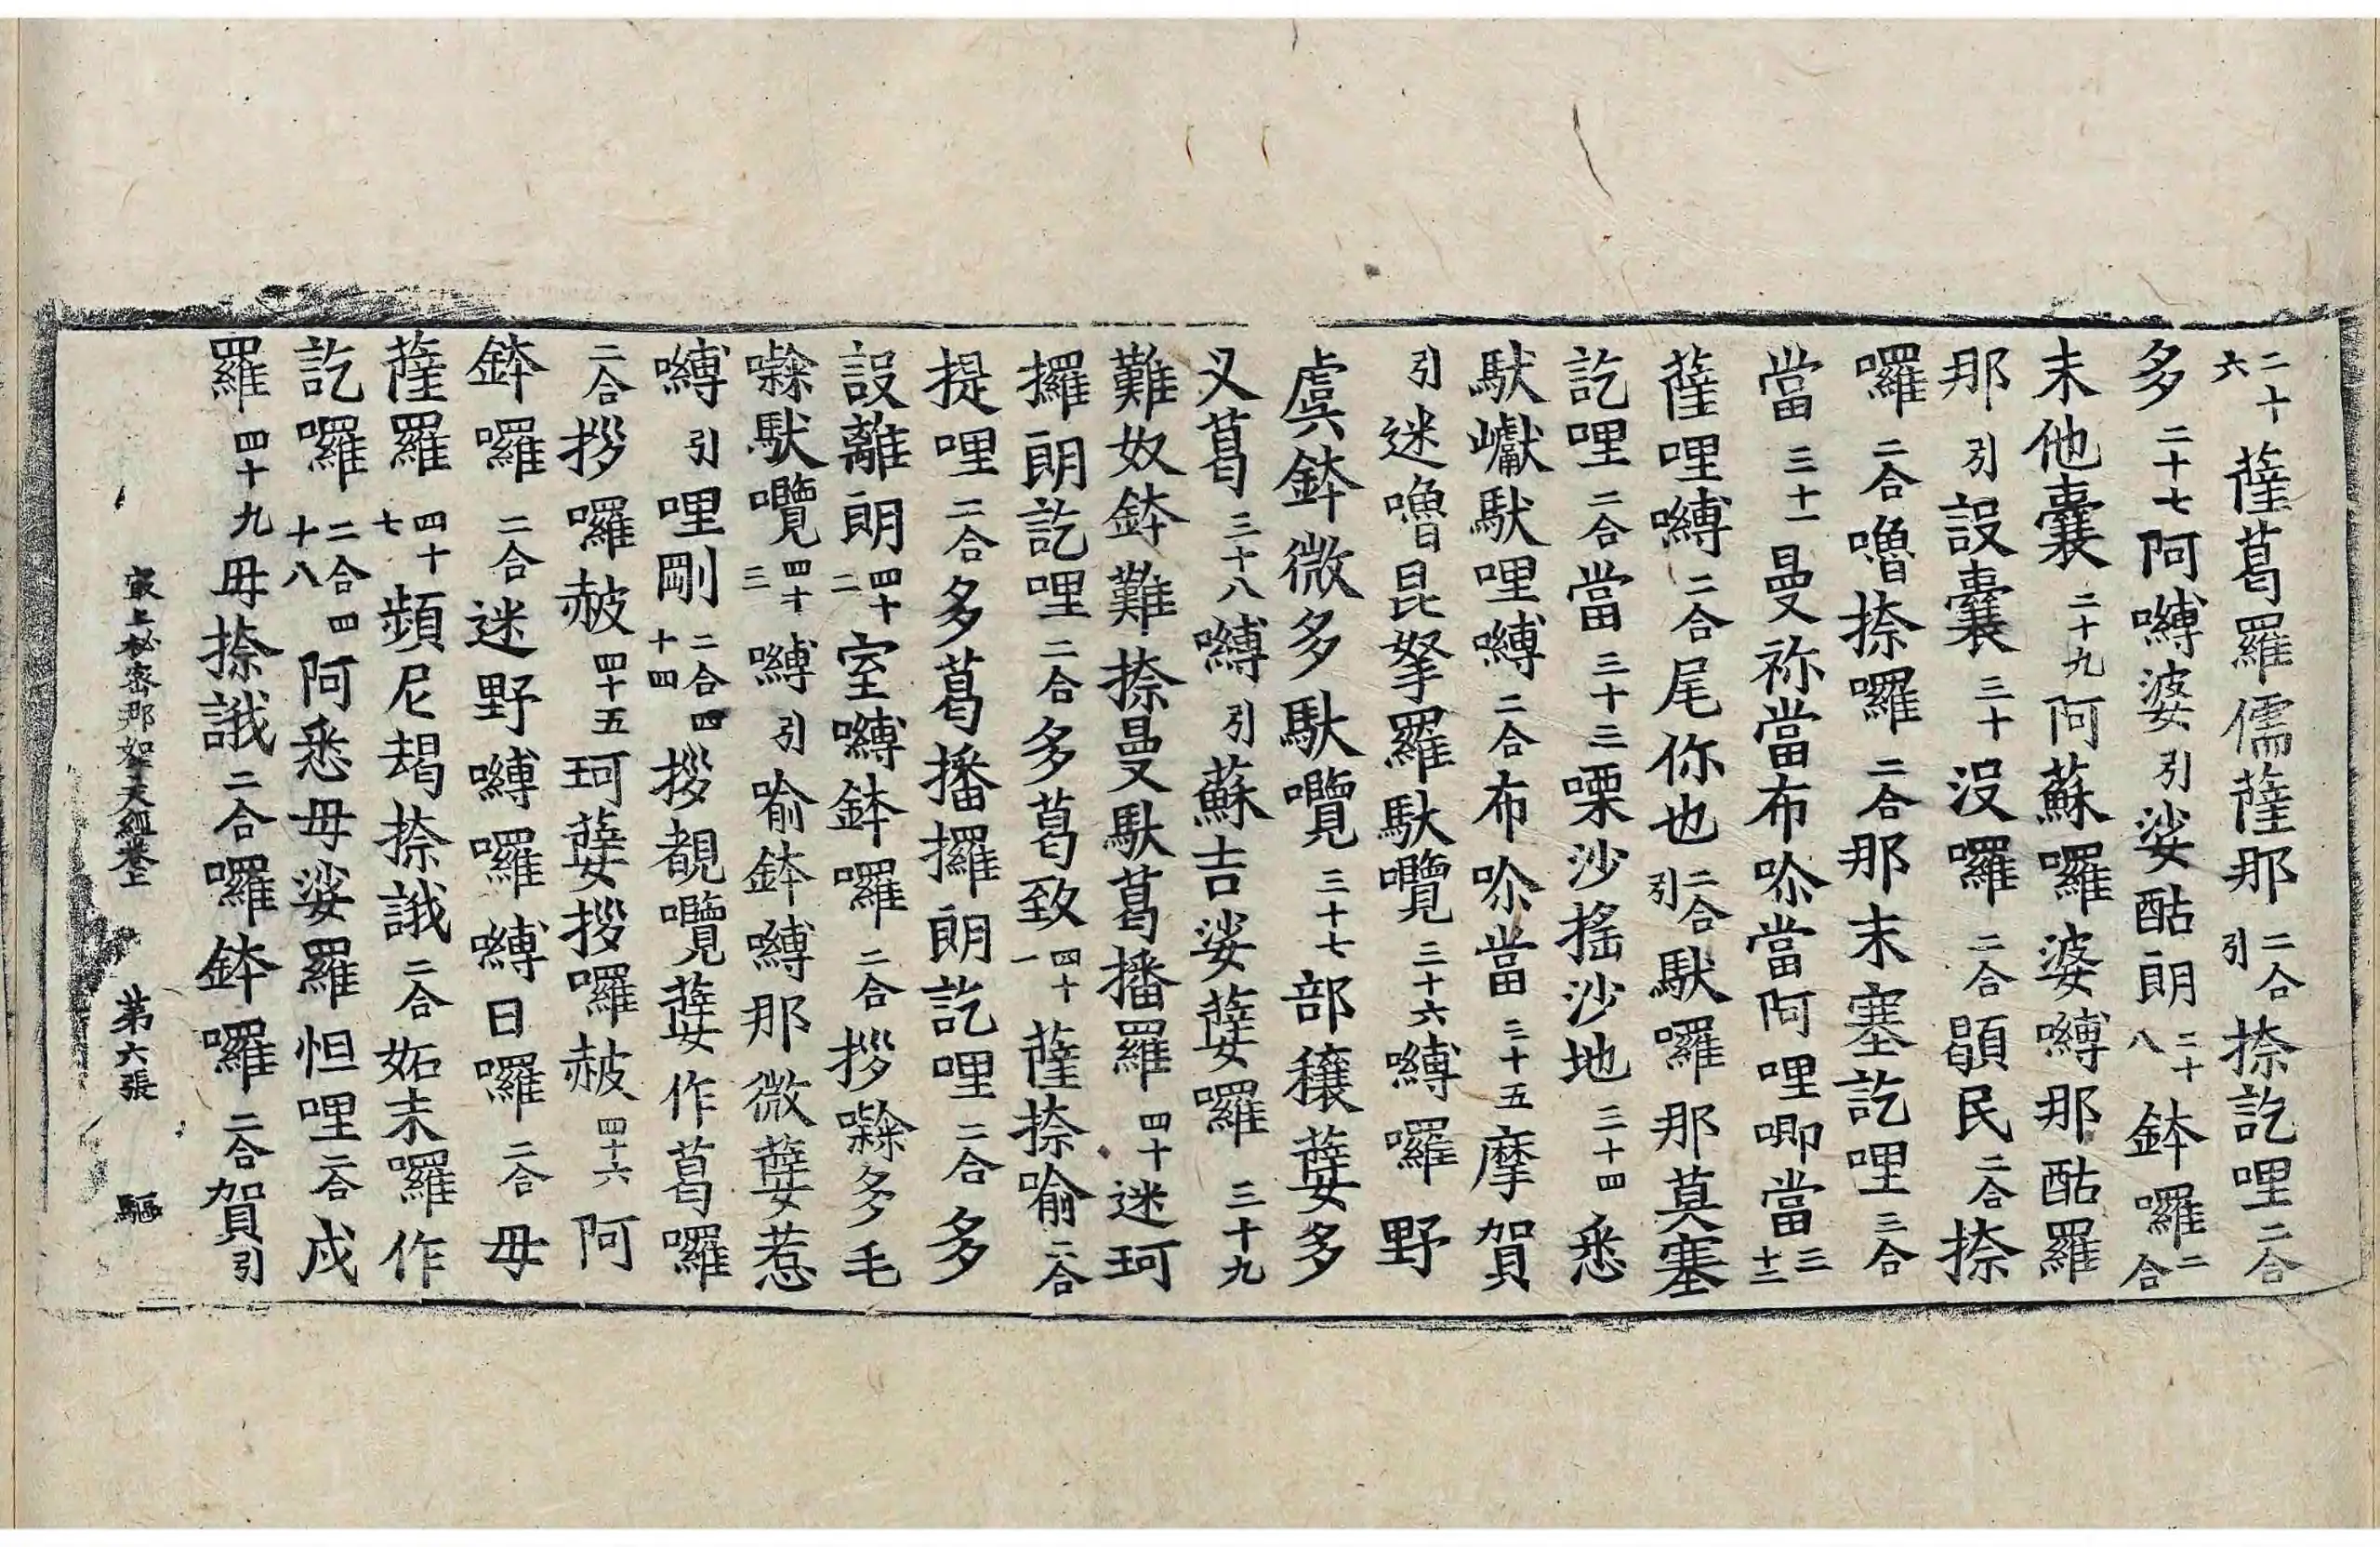 二十六薩葛羅儒薩那二合引捺訖哩二合
多二十七阿嚩婆引娑酤朗二十八鉢囉二合
末他囊二十九阿蘇囉婆嚩那酤羅
那引設囊三十沒囉二合顕民二合捺
囉二合嚕捺囉二合那末塞訖哩三合
當三十一曼祢當布唋當阿哩唧當三十二
薩哩嚩二合尾你也二合引馱囉那莫塞
訖哩二合當三十三㗚沙搖沙地三十四悉
馱巘馱哩嚩二合布唋當三十五摩賀
引迷嚕昆拏羅馱囕三十六嚩囉野
虞鉢微多馱囕三十七部穰蘡多
叉葛三十八嚩引蘇吉娑蘡囉三十九
難奴鉢難捺曼馱葛播羅四十迷珂
攞朗訖哩二合多葛致四十一薩捺喻二合
提哩二合多葛播攞朗訖哩二合多
設離朗四十二室嚩鉢囉二合拶㘑多毛
㘑馱囕四十三嚩引喻鉢嚩那微蘡惹
嚩引哩剛二合四十四拶覩囕蘡作葛囉
二合拶囉赧四十五珂蘡拶囉赧四十六阿
鉢囉二合迷野嚩囉嚩日囉二合毋
薩羅四十七頻尼朅捺誐二合妬末囉作
訖囉二合四十八阿悉毋娑羅怛哩二合戍
羅四十九毋捺誐二合囉鉢囉二合賀引
最上秘密那拏天經卷上　第六張　驅